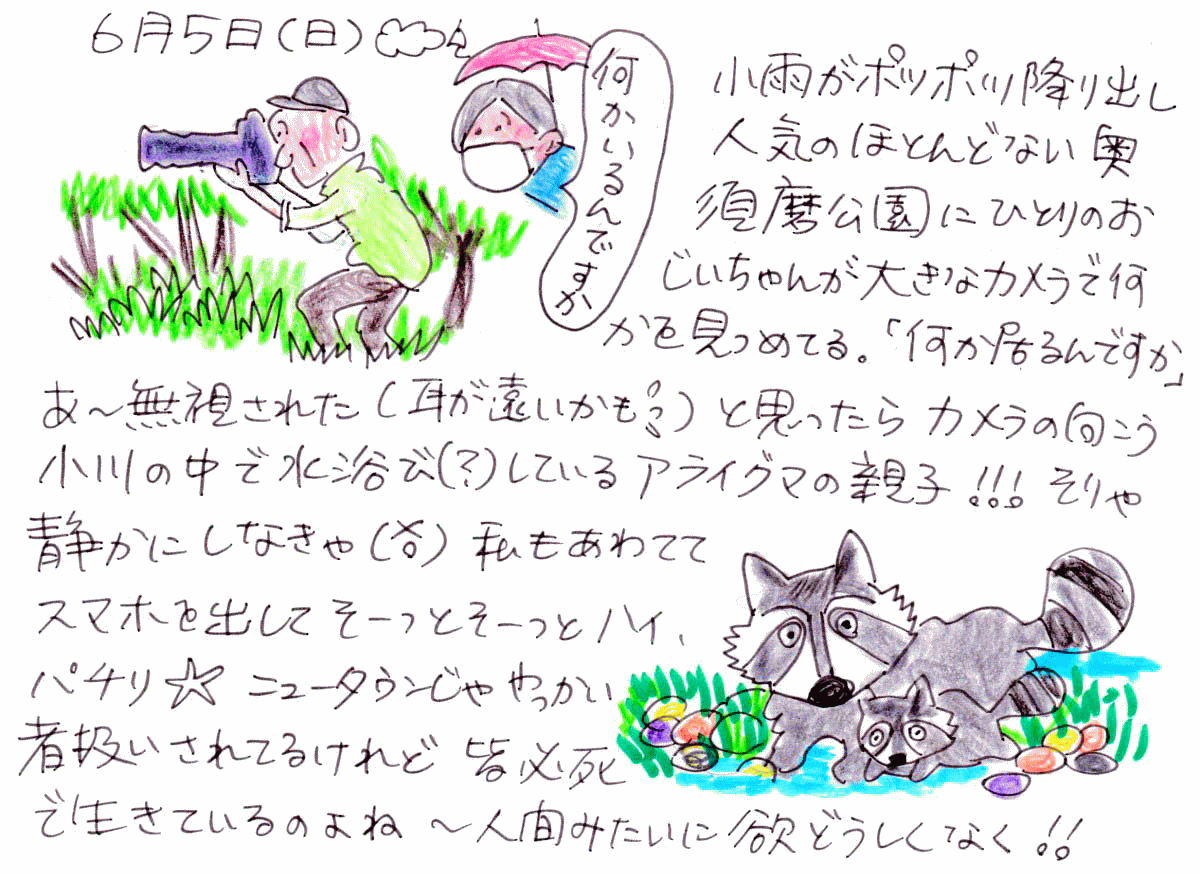 6月5日(日)
何かいるんですか
小雨がポツポツ降り出し
人気のほとんどない奥
須磨公園にひとりのお
じいちゃんが大きなカメラで何
かを見つめてる。「何か居るんですか」
あ〜無視された(耳が遠いかも??)と思ったらカメラの向こう
小川の中で水浴び(?)しているアライグマの親子!!! そりゃ
静かにしなきゃ(答)私もあわてて
スマホを出してそーっとそーっとハイ、
パチリ☆ ニュータウンじゃやっかい
者扱いされてるけれど皆必死
で生きているのよね 〜人間みたいに欲どうしくなく!!